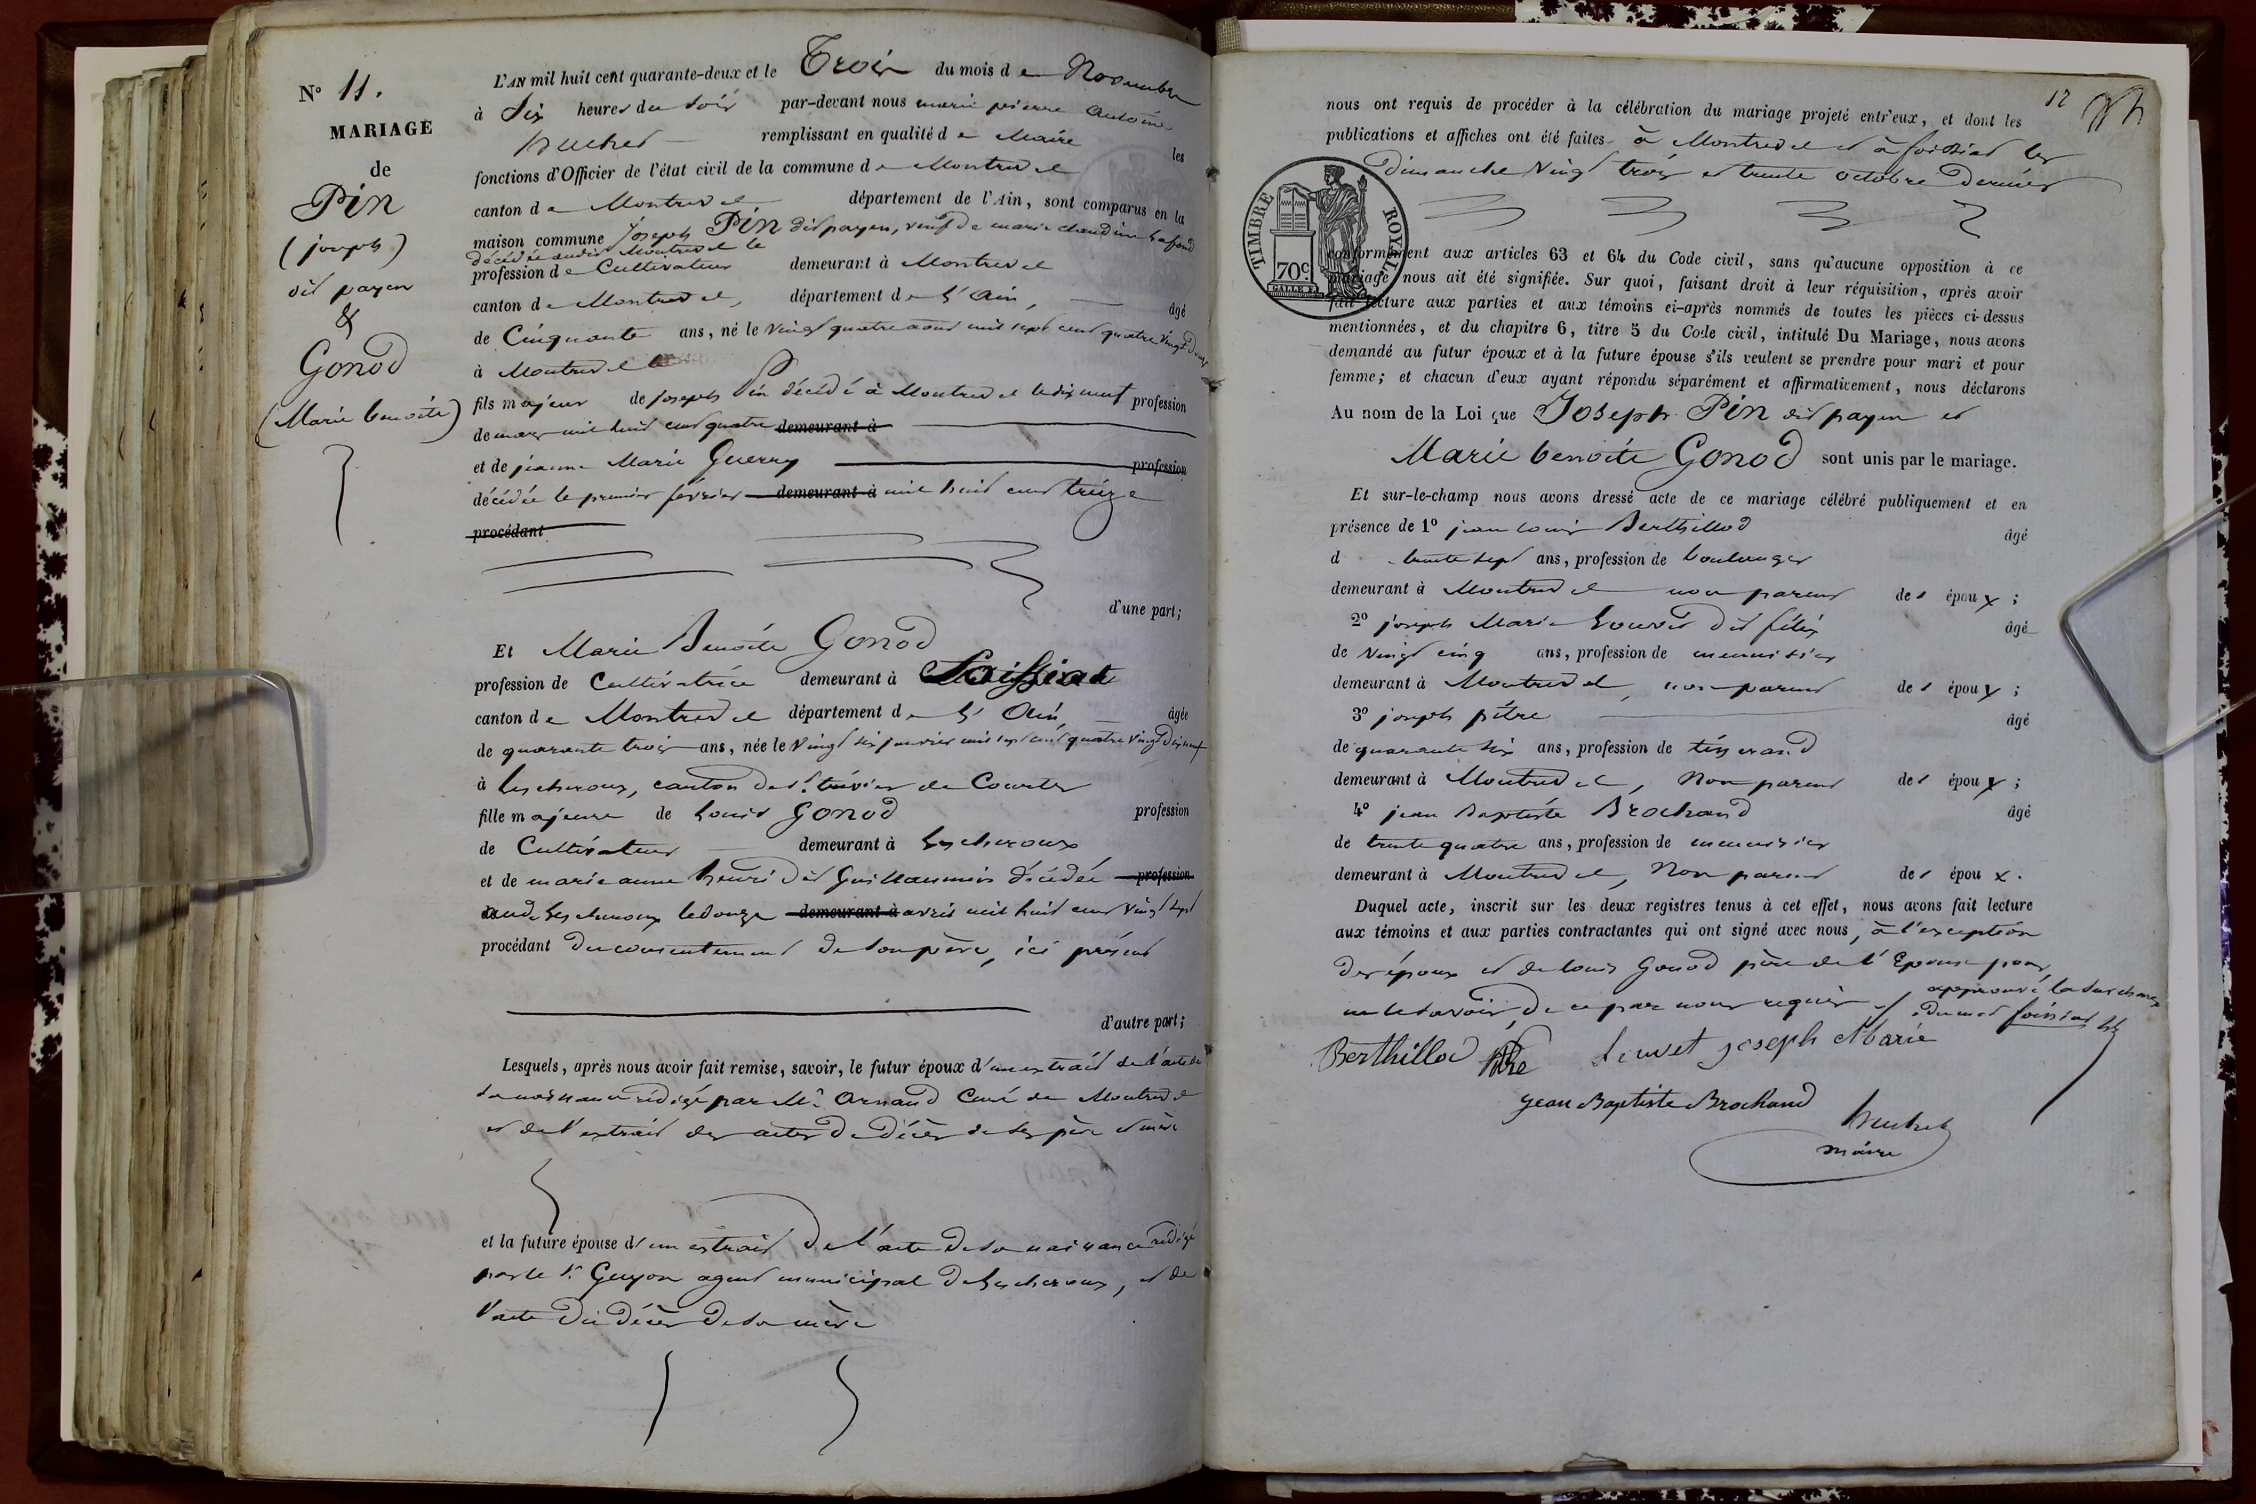 N° 11.
MARIAGE
de
Pin
(joseph)
dit payen
&
Gonod
(Marie benoite)
L'AN mil huit cent quarante-deux et le Trois du mois de Novembre
à Six heures du soir par-devant nous marie pierre Antoine
remplissant en qualité de Maire les
fonctions d'Officier de l'état civil de la commune de Montrevel
canton de Montrevel département de l'Ain, sont comparus en la
maison commune Joseph Pin dit payen, veuf de marie claudine Lafond
décédée audit Montrevel le
profession de Cultivateur demeurant à Montrevel
canton de Montrevel, département de L'Ain, âgé
de Cinquante ans, né le vingt quatre aout mil sept cent quatre vingt douze
à Montrevel
fils majeur de joseph Pin décédé à Montrevel le dix neuf profession
de mars mil huit cent quatre demeurant à
et de jeanne Marie Guerry profession
décédée le premier février demeurant à mil huit cent treize
procédant
d'une part;
Et Marie Benoite Gonod
profession de Cultivatrice demeurant à Foissiat
canton de Montrevel département de L'Ain, âgée
de quarante trois ans, née le vingt six janvier mil sept cent quatre vingt dix neuf
à Lescheroux, canton de St. trivier de Courtes
fille majeure de Louis Gonod profession
de Cultivateur demeurant à Lescheroux
et de marie anne henri dit Guillaumin décédée profession
audit Lescheroux le douze demeurant à avril mil huit cent vingt sept
procédant du consentement de son père, ici présent
d'autre part;
Lesquels, après nous avoir fait remise, savoir, le futur époux d'un extrait de l'acte de
sa naissance rédigé par Mr. Arnaud Curé de Montrevel
et de l'extrait des actes de décès de ses père et mère
et la future épouse d'un extrait de l'acte de sa naissance rédigé
par le Sr. Guyon agent municipal de Lescheroux, et de
l'acte du décès de sa mère
12
nous ont requis de procéder à la célébration du mariage projeté entr'eux, et dont les
publications et affiches ont été faites à Montrevel et à foissiat les
dimanche vingt trois et trente octobre dernier
TIMBRE ROYAL
70c.
conformément aux articles 63 et 64 du Code civil, sans qu'aucune opposition à ce
mariage nous ait été signifiée. Sur quoi, faisant droit à leur réquisition, après avoir
fait lecture aux parties et aux témoins ci-après nommés de toutes les pièces ci-dessus
mentionnées, et du chapitre 6, titre 5 du Code civil, intitulé Du Mariage, nous avons
demandé au futur époux et à la future épouse s'ils veulent se prendre pour mari et pour
femme; et chacun d'eux ayant répondu séparément et affirmativement, nous déclarons
Au nom de la Loi que Joseph Pin dit payen et
Marie benoite Gonod sont unis par le mariage.
Et sur-le-champ nous avons dressé acte de ce mariage célébré publiquement et en
présence de 1° jean louis Berthillod âgé
d trente sept ans, profession de boulanger
demeurant à Montrevel non parent des époux;
2° joseph Marie Louvet dit félix âgé
de vingt cinq ans, profession de menuisier
demeurant à Montrevel, non parent des époux;
3° joseph pitre âgé
de quarante six ans, profession de tisserand
demeurant à Montrevel, Non parent des époux;
4° jean Baptiste Brochand âgé
de trente quatre ans, profession de menuisier
demeurant à Montrevel, Non parent des époux.
Duquel acte, inscrit sur les deux registres tenus à cet effet, nous avons fait lecture
aux témoins et aux parties contractantes qui ont signé avec nous, à l'exception
des époux et de louis Gonod père de l'Epouse pour
ne le savoir, de ce par nous requis approuvé la surcharge
du mot foissiat
Berthillod pitre Louvet joseph Marie
jean Baptiste Brochand
maire